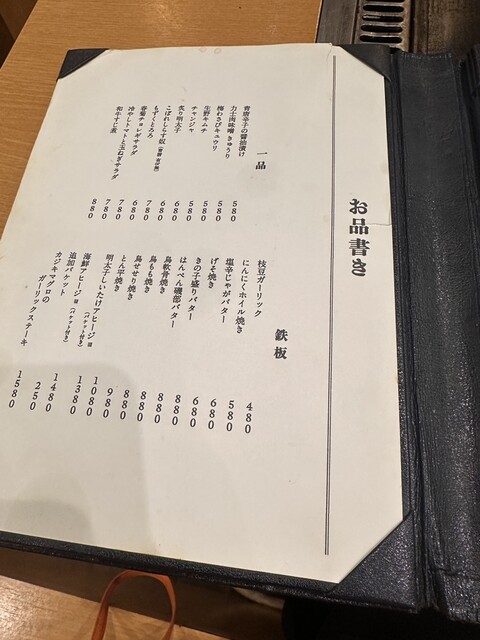 お品書き
一品
青唐辛子の醤油漬け 580
力士肉味噌きゅうり 580
梅わさびキュウリ 580
生野キムチ 580
チャンジャ 680
炙り明太子 680
こぼれしらす奴 780
もずくとろろ 680
春菊チョレギサラダ 780
冷やしトマトと玉ねぎサラダ 780
和牛すじ煮 880
鉄板
枝豆ガーリック 480
にんにくホイル焼き 580
塩辛じゃがバター 680
げそ焼き 680
きのこ盛りバター 880
はんぺん磯部バター 880
鳥軟骨焼き 880
鳥もも焼き 880
鳥せせり焼き 980
とん平焼き 1080
明太子しいたけアヒージョ (バケット付き) 1380
海鮮アヒージョ (バケット付き) 1480
追加バケット 250
カジキマグロの
ガーリックステーキ 1580